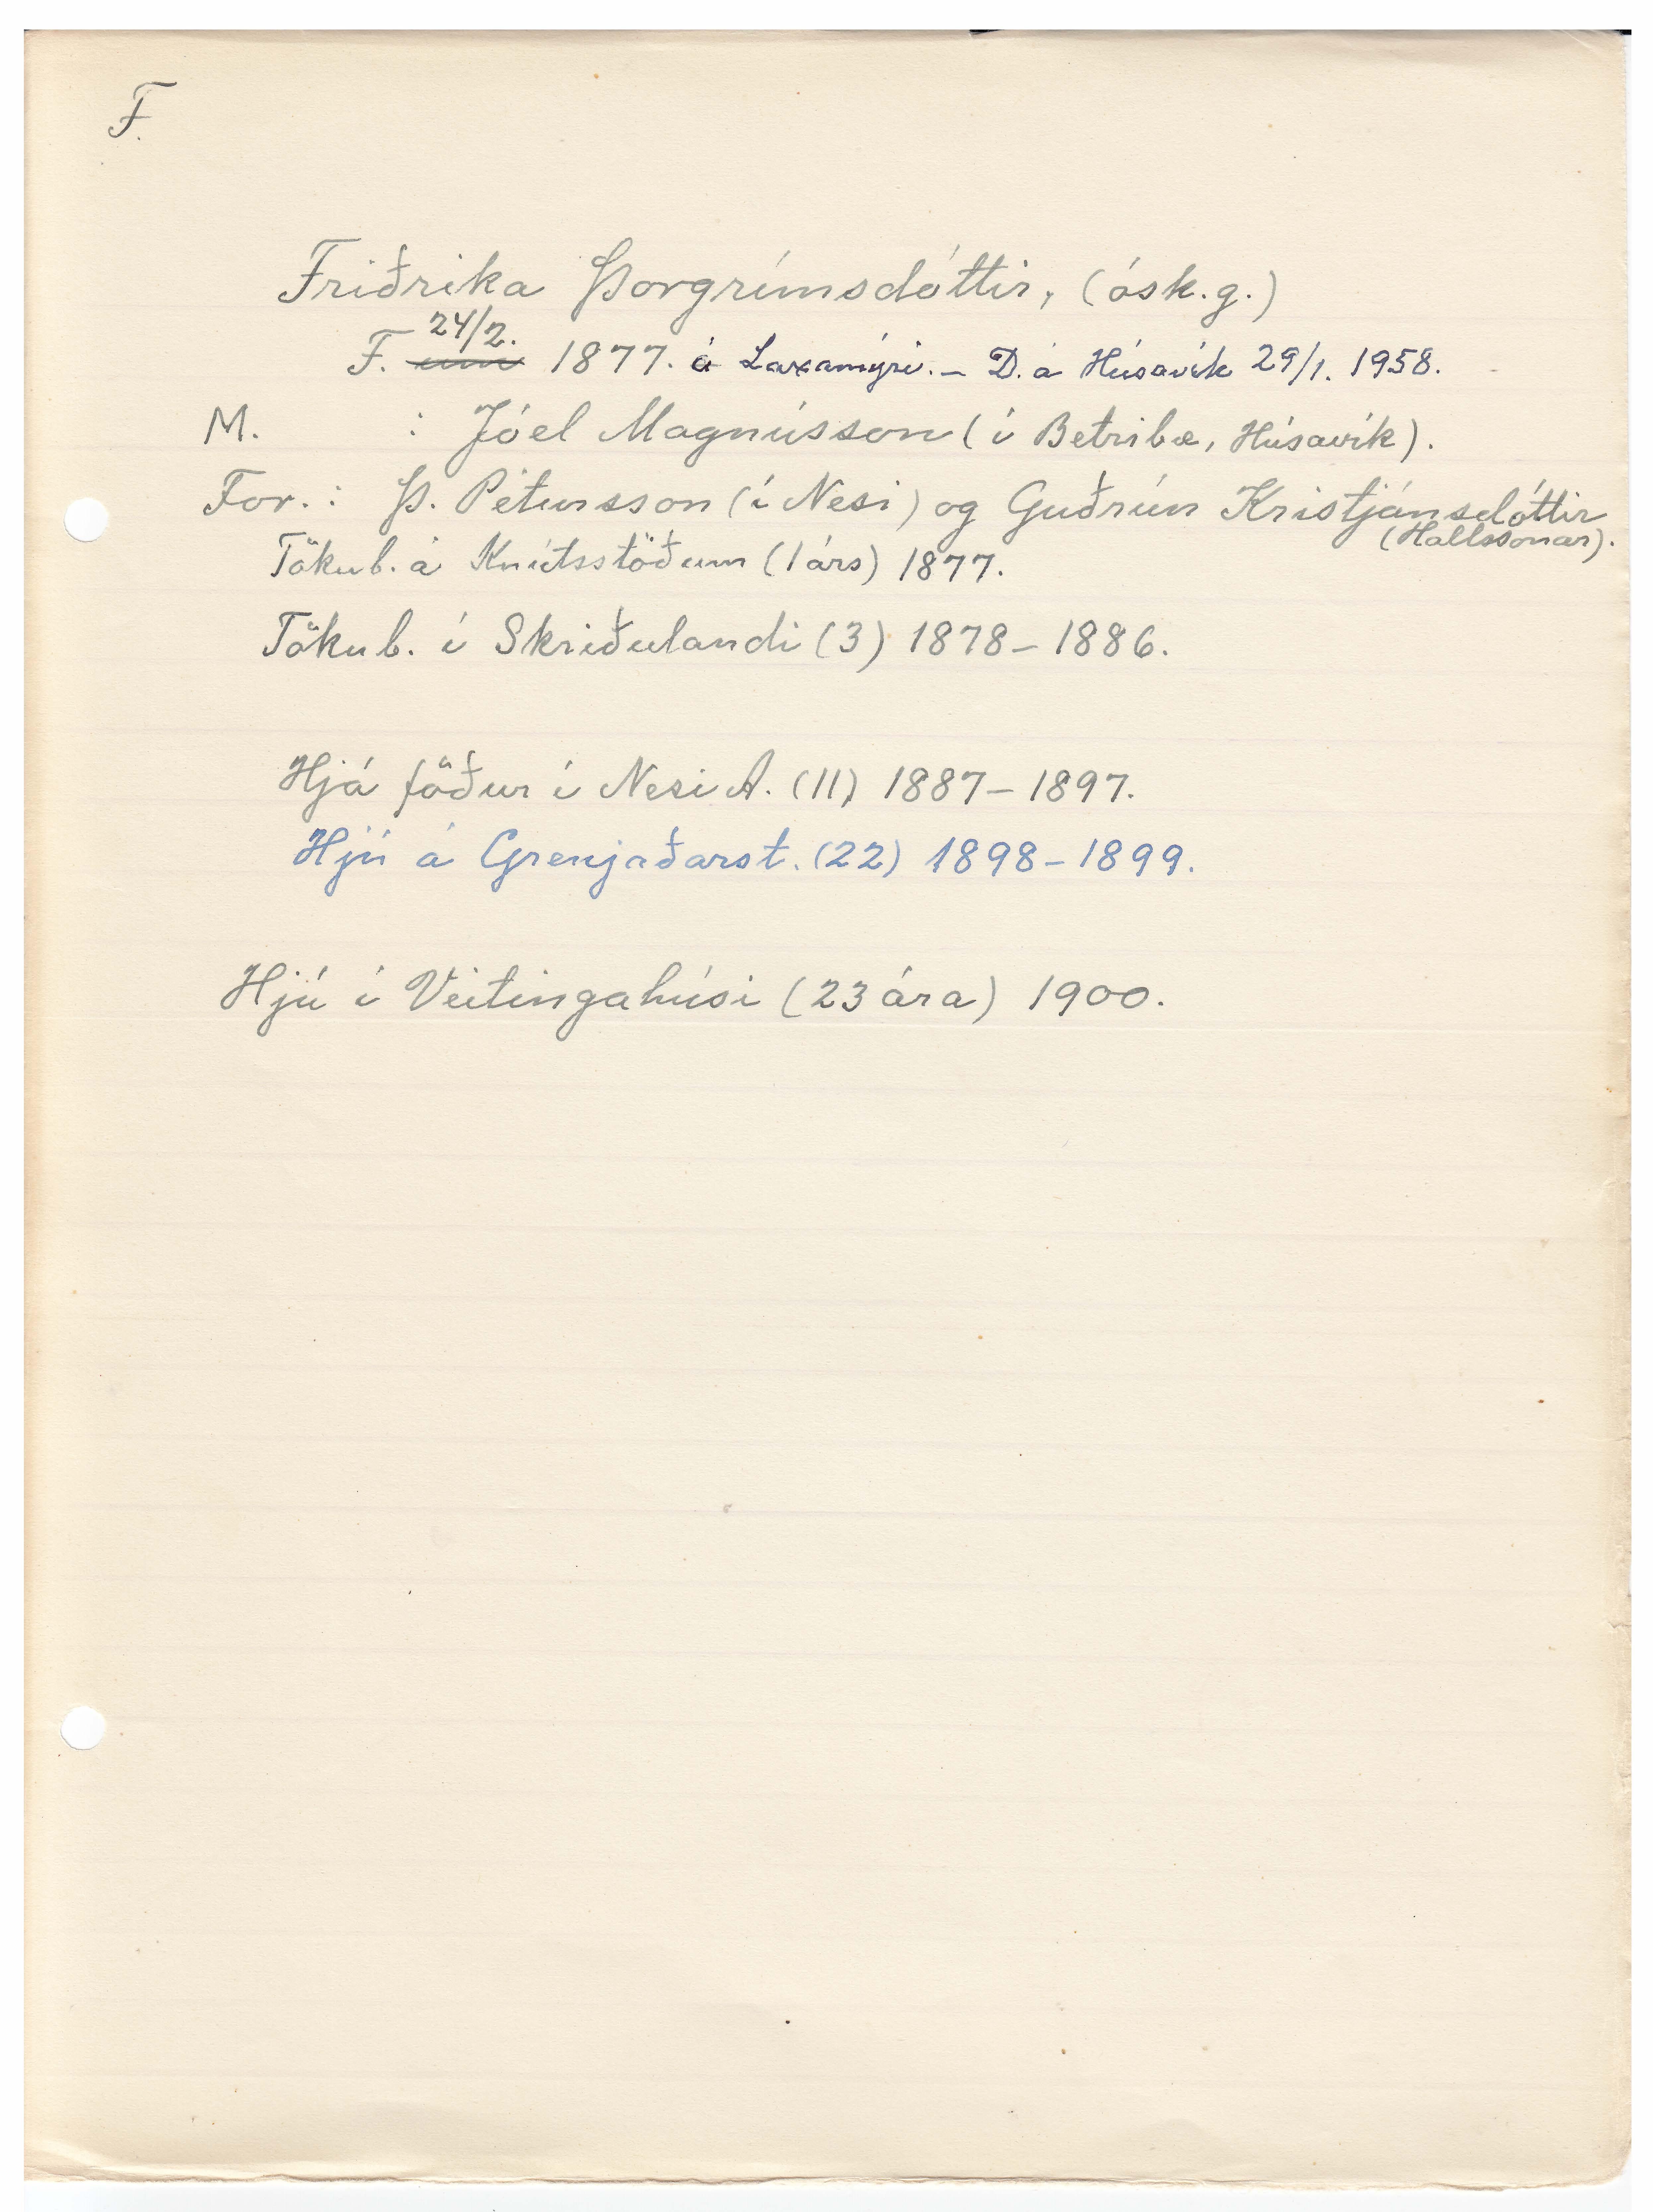 F.
Friðrika Þorgrímsdóttir, (ósk.g.)
24/2.
F. um 1877. á Laxamýri. – D. á Húsavík 29/1. 1958.
M. : Jóel Magnússon (í Betribæ, Húsavík).
For. : Þ. Pétursson (í Nesi) og Guðrún Kristjánsdóttir
(Hallssonar).
Tökub. á Knútsstöðum (1 árs) 1877.
Tökub. í Skriðulandi (3) 1878–1886.
Hjá föður í Nesi A. (11) 1887–1897.
Hjú á Grenjaðarst. (22) 1898–1899.
Hjú í Veitingahúsi (23 ára) 1900.